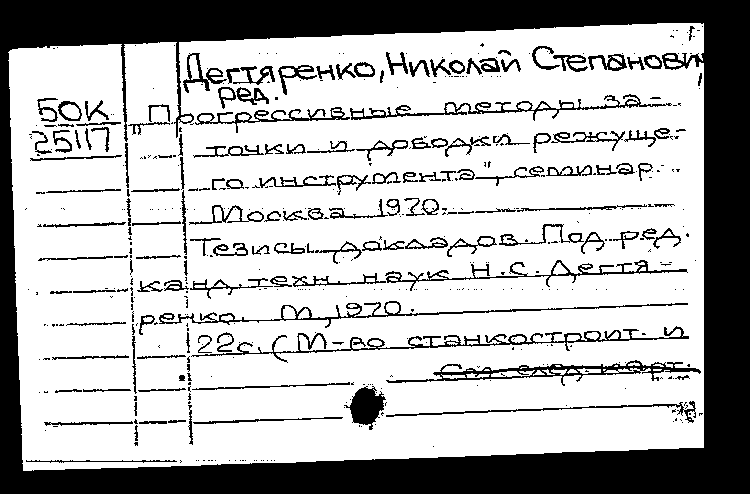 Дегтяренко, Николай Степанович
ред.
50К
25117
"Прогрессивные методы за-
точки и доводки режуще-
го инструмента", семинар.
Москва. 1970.
Тезисы докладов. Под ред.
канд. техн. наук Н.С. Дегтя-
ренко. М., 1970.
22с. (М-во станкостроит. и
См. след. карт.